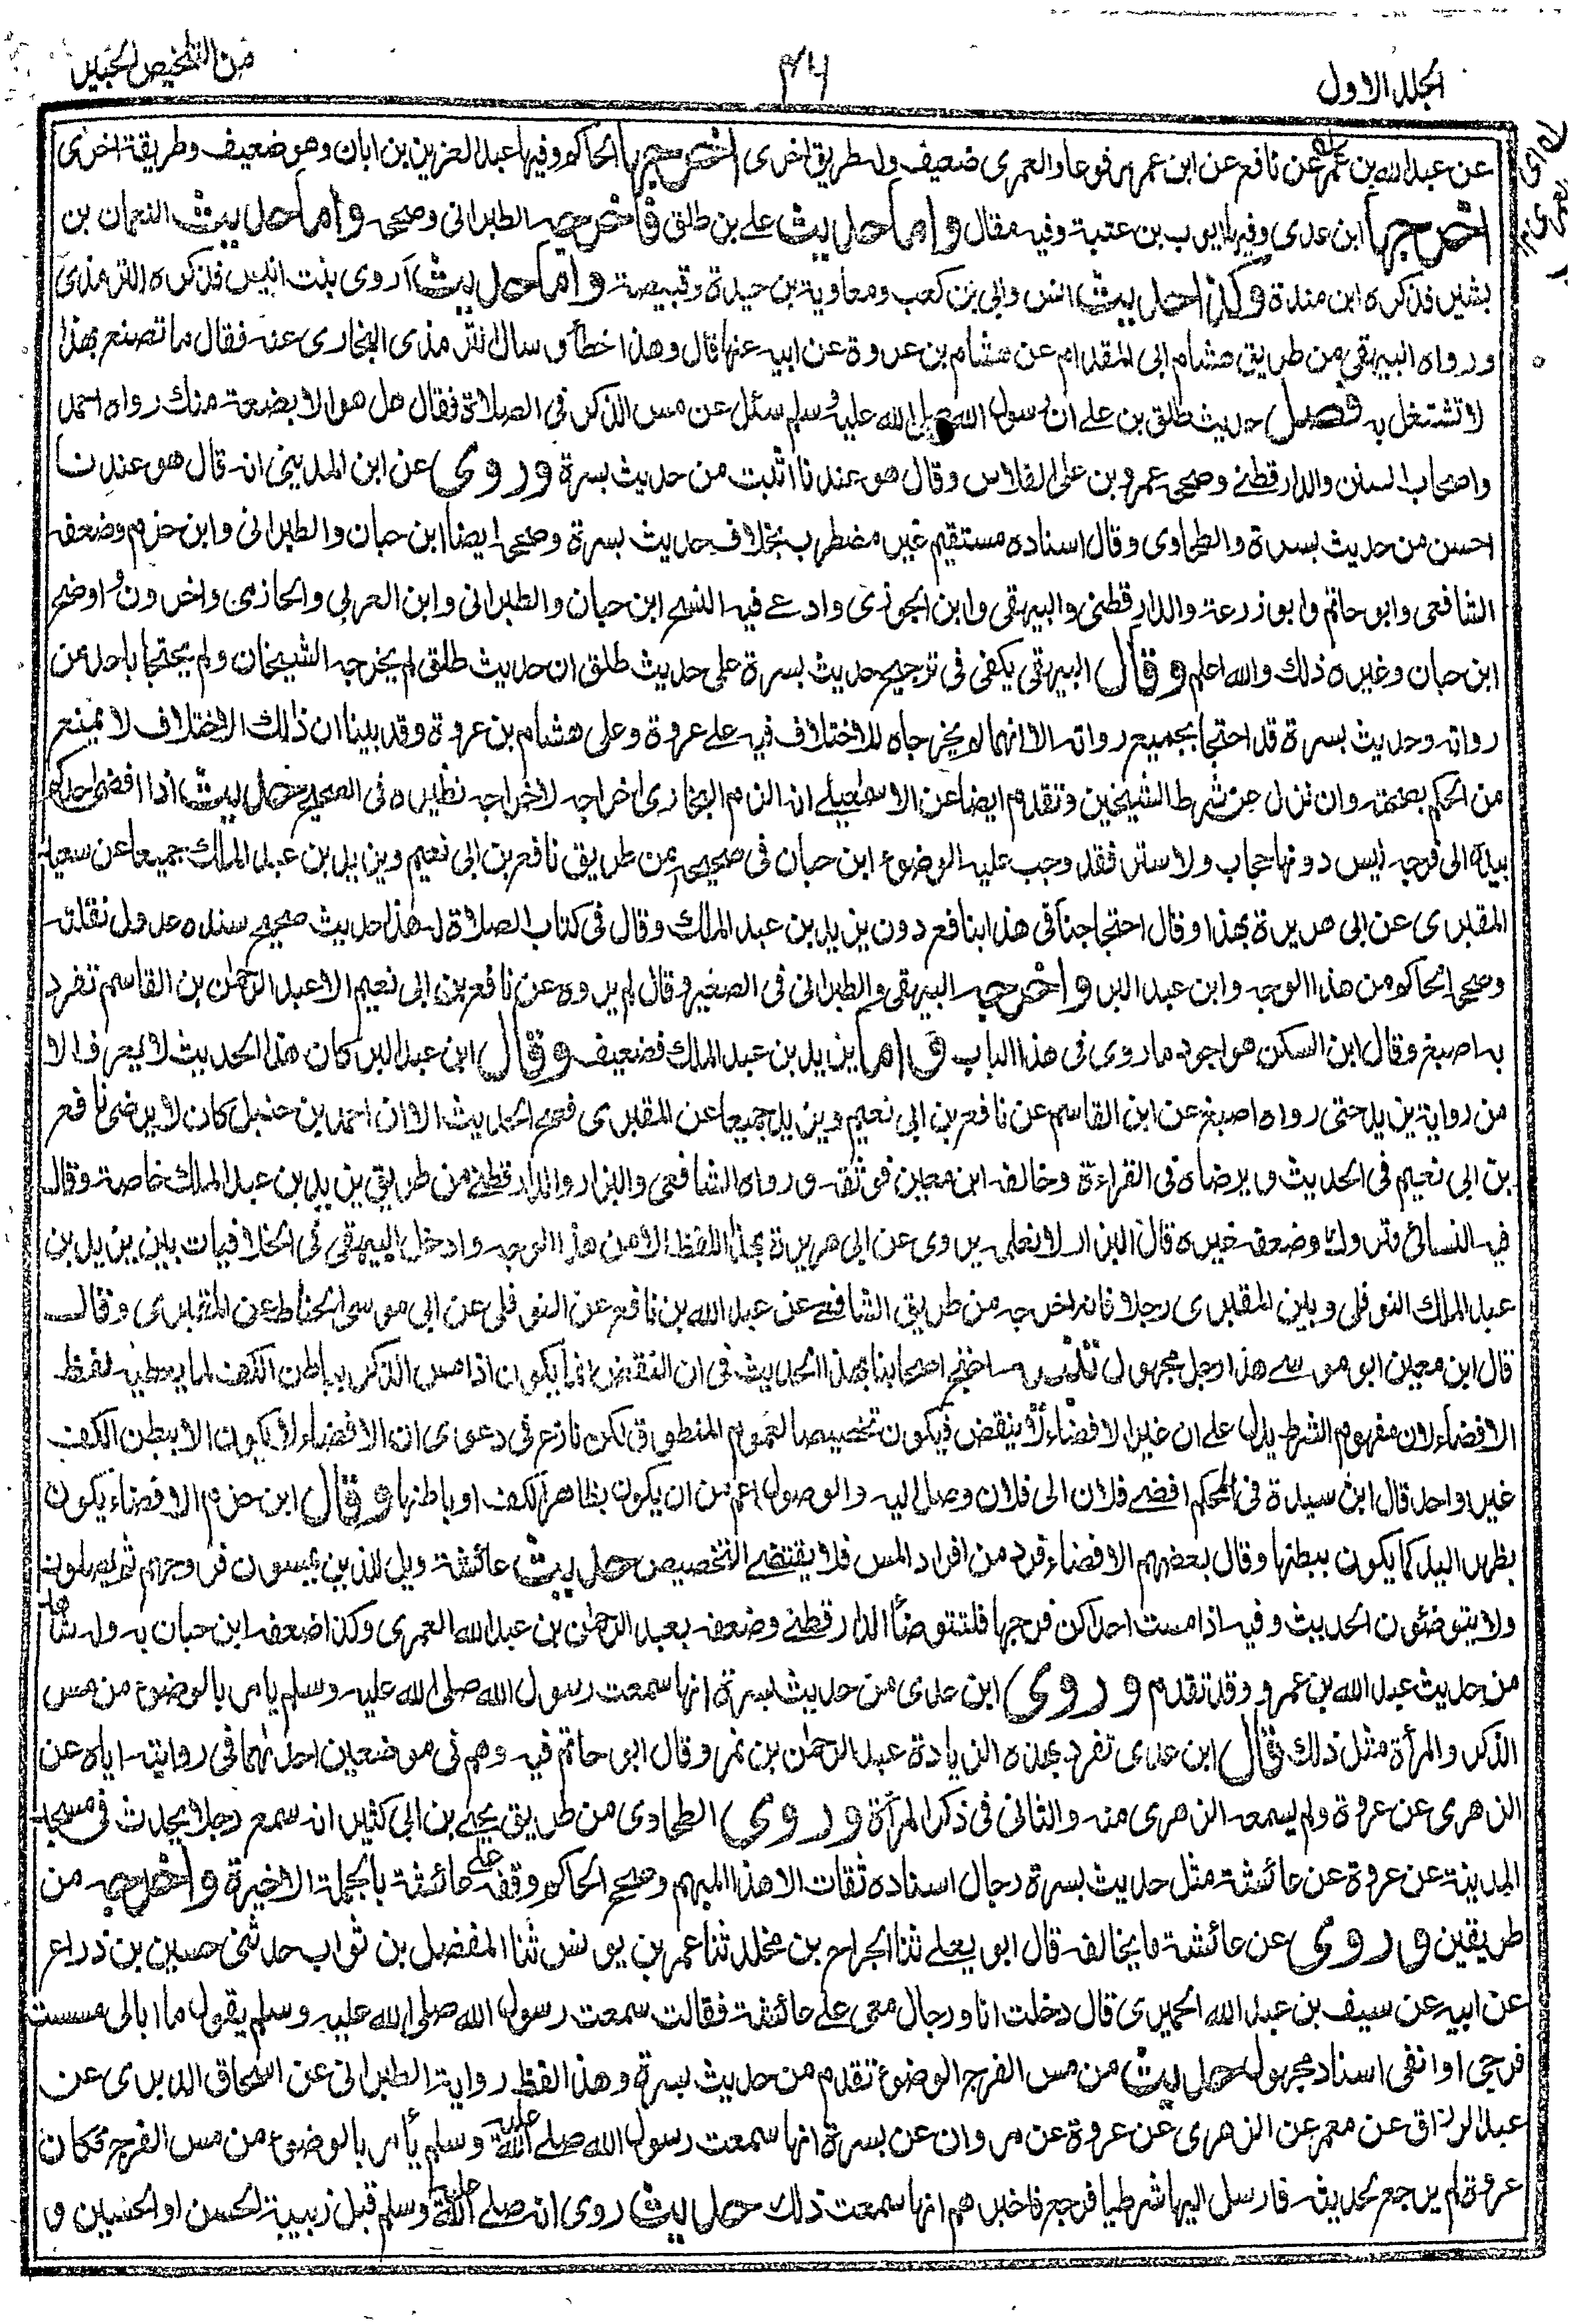 الجلد الاول
٤٦
من التلخيص الحبير
عن عبد الله بن عمر عن نافع عن ابن عمر مرفوعا والعمرى ضعيف وله طريق اخرى اخرجها الحاكم وفيها عبد العزيز بن ابان وهو ضعيف وطريقة اخرى
اخرجها ابن عدى وفيها ايوب بن عتبة وفيه مقال واما حديث علي بن طلق فاخرجه الطبرانى وصححه واما حديث النعمان بن
بشير فذكره ابن مندة وكذا حديث انس وابي بن كعب ومعاوية بن حيدة وقبيصة واما حديث أروى بنت انيس فذكره الترمذى
ورواه البيهقى من طريق هشام ابى المقدام عن هشام بن عروة عن ابيه عنها قال وهذا خطأ وسال الترمذى البخارى عنه فقال ما تصنع بهذا
لا تشتغل به فصل حديث طلق بن على ان رسول الله صلى الله عليه وسلم سئل عن مس الذكر فى الصلاة فقال هل هو الا بضعة منك رواه احمد
واصحاب السنن والدارقطنے وصححه عمرو بن على الفلاس وقال هو عندنا اثبت من حديث بسرة وروى عن ابن المدينى انه قال هو عندنا
احسن من حديث بسرة والطحاوى وقال اسناده مستقيم غير مضطرب بخلاف حديث بسرة وصححه ايضا ابن حبان والطبرانى وابن حزم وضعفه
الشافعى وابو حاتم وابو زرعة والدارقطنى والبيهقى وابن الجوزى وادعے فيه النسخ ابن حبان والطبرانى وابن العربي والحازمى واخرون واوضح
ابن حبان وغيره ذلك والله اعلم وقال البيهقى يكفى فى ترجيح حديث بسرة على حديث طلق ان حديث طلق لم يخرجه الشيخان ولم يحتجا باحد من
رواته وحديث بسرة قد احتجا بجميع رواته الا انهما لم يخرجاه للاختلاف فيه علے عروة وعلى هشام بن عروة وقد بينا ان ذلك الاختلاف لا يمنع
من الحكم بصحته وان نزل عن شرط الشيخين وتقدم ايضا عن الاسمعيلے انه الزم البخارى اخراجه لاخراجه نظيره فى الصحيح حديث اذا افضى احدكم
بيده الى فرجه ليس دونها حجاب ولا ستر فقد وجب عليه الوضوء ابن حبان فى صحيحه من طريق نافع بن ابى نعيم ويزيد بن عبد الملك جميعا عن سعيد
المقبرى عن ابى هريرة بهذا وقال احتجاجنا فى هذا بنافع دون يزيد بن عبد الملك وقال فى كتاب الصلاة له هذا حديث صحيح سنده عدول نقلته
وصححه الحاكم من هذا الوجه وابن عبد البر واخرجه البيهقى والطبرانى فى الصغير وقال لم يروه عن نافع بن ابى نعيم الا عبد الرحمٰن بن القاسم تفرد
به اصبغ وقال ابن السكن هو اجود ما روى فى هذا الباب واما يزيد بن عبد الملك فضعيف وقال ابن عبد البر كان هذا الحديث لا يعرف الا
من رواية يزيد حتى رواه اصبغ عن ابن القاسم عن نافع بن ابى نعيم ويزيد جميعا عن المقبرى فصح الحديث الا ان احمد بن حنبل كان لا يرضى نافع
بن ابى نعيم فى الحديث ويرضاه فى القراءة وخالفه ابن معين فوثقه ورواه الشافعى والبزار والدارقطنے من طريق يزيد بن عبد الملك خاصة وقال
فيه النسائى متروك وضعفه غيره قال البزار لا نعلمه يروى عن ابى هريرة بهذا اللفظ الا من هذا الوجه وادخل البيهقى فى الخلافيات بين يزيد بن
عبد الملك النوفلى وبين المقبرى رجلا فانه اخرجه من طريق الشافعے عن عبد الله بن نافع عن النوفلى عن ابى موسى الحناط عن المقبرى وقال
قال ابن معين ابو موسے هذا رجل مجهول تنبيه احتج اصحابنا بهذا الحديث فى ان النقض انما يكون اذا مس الذكر بباطن الكف لما يعطيه لفظ
الافضاء لان مفهوم الشرط يدل علے ان غير الافضاء لا ينقض فيكون تخصيصا لعموم المنطوق لكن نازع فى دعوى ان الافضاء لا يكون الا ببطن الكف
غير واحد قال ابن سيدة فى المحكم افضے فلان الى فلان وصل اليه والوصول اعم من ان يكون بظاهر الكف او باطنها وقال ابن حزم الافضاء يكون
بظهر اليد كما يكون ببطنها وقال بعضهم الافضاء فرد من افراد المس فلا يقتضے التخصيص حديث عائشة ويل للذين يمسون فروجهم ثم يصلون
ولا يتوضئون الحديث وفيه اذا مست احداكن فرجها فلتتوضأ الدارقطنے وضعفه بعبد الرحمٰن بن عبد الله العمرى وكذا ضعفه ابن حبان به وله شاهد
من حديث عبد الله بن عمرو وقد تقدم وروى ابن عدى من حديث بسرة انها سمعت رسول الله صلى الله عليه وسلم يامر بالوضوء من مس
الذكر والمرأة مثل ذلك قال ابن عدى تفرد بهذه الزيادة عبد الرحمٰن بن نمر وقال ابو حاتم فيه وهم فى موضعين احدهما فى روايته اياه عن
الزهرى عن عروة ولم يسمعه الزهرى منه والثانى فى ذكر المرأة وروى الطحاوى من طريق يحيے بن ابى كثير انه سمع رجلا يحدث فى مسجد
المدينة عن عروة عن عائشة مثل حديث بسرة رجال اسناده ثقات الا هذا المبهم وصحح الحاكم وقفه على عائشة بالجملة الاخيرة واخرجه من
طريقين وروى عن عائشة ما يخالفه قال ابو يعلے ثنا الجراح بن مخلد ثنا عمر بن يونس ثنا المفضل بن ثواب حدثنى حسين بن ذراع
عن ابيه عن سيف بن عبد الله الحميرى قال دخلت انا ورجال معى علے عائشة فقالت سمعت رسول الله صلى الله عليه وسلم يقول ما ابالى مسست
فرجى او انفى اسناد مجهول حديث من مس الفرج الوضوء تقدم من حديث بسرة وهذا لفظ رواية الطبرانى عن اسحاق الدبرى عن
عبد الرزاق عن معمر عن الزهرى عن عروة عن مروان عن بسرة انها سمعت رسول الله صلے الله عليه وسلم يأمر بالوضوء من مس الفرج فكان
عروة لم يرجع لحديثه فارسل اليها شرطيا فرجع فاخبرهم انها سمعت ذلك حديث روى انه صلے الله عليه وسلم قبل زبيبة الحسن او الحسين و